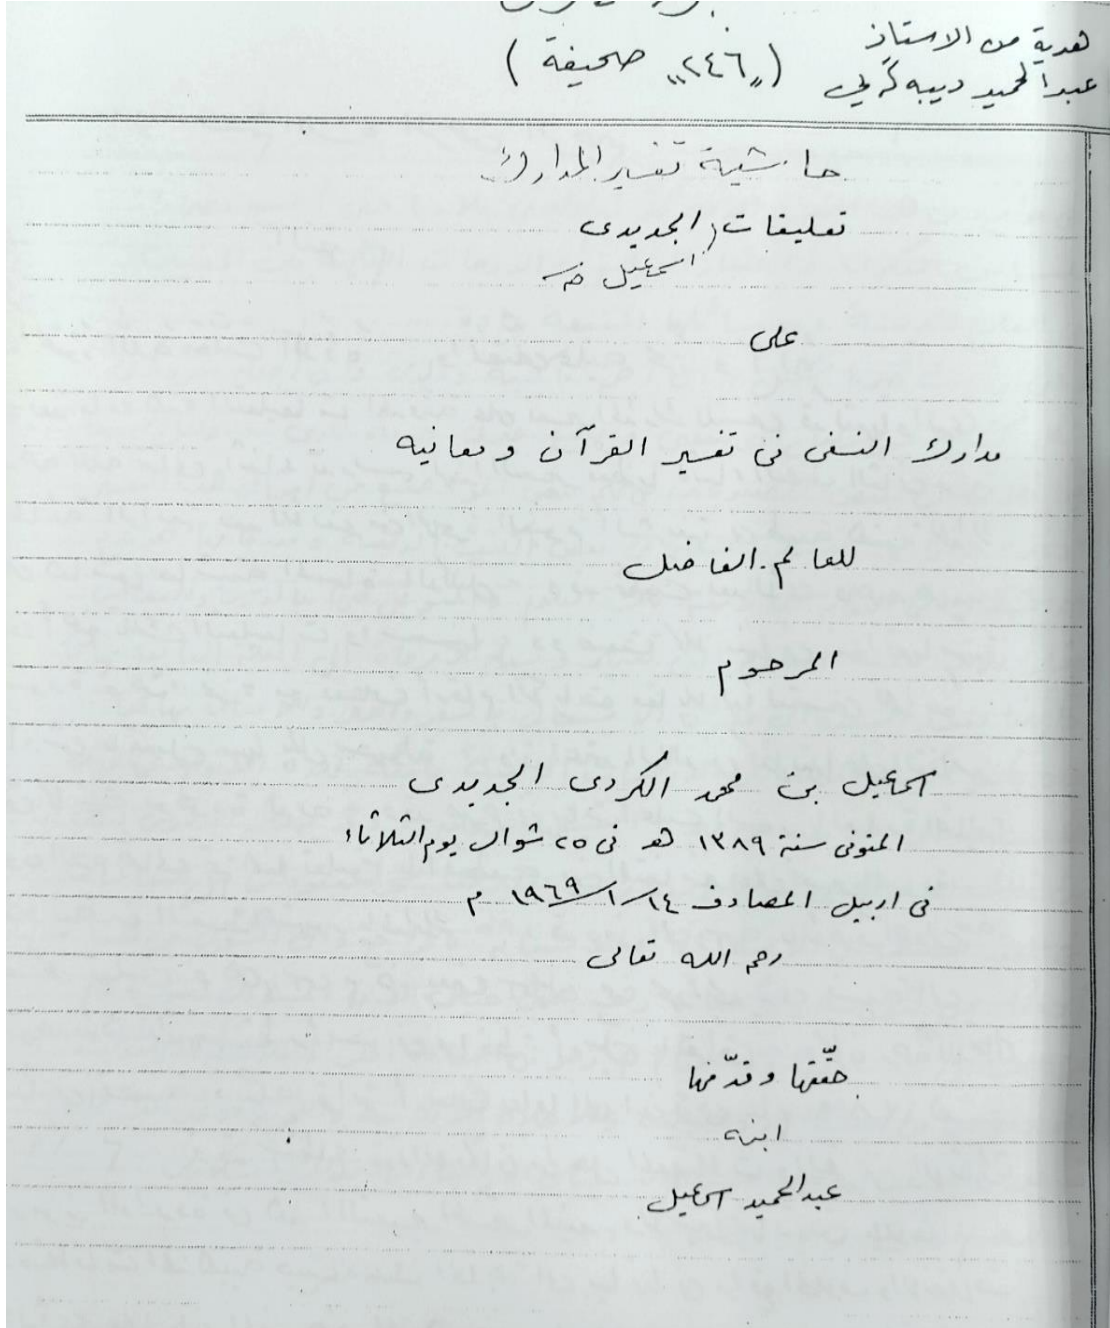 هدية من الاستاذ
عبدالحميد ديبه گەيي
(„٢٤٦„ صحيفة )
حاشية تفسير المدارك
تعليقات الجديدى
اسماعيل
على
مدارك النسفى فى تفسير القرآن ومعانيه
للعالم الفاضل
المرحوم
اسماعيل بن محمد الكردى الجديدى
المتوفى سنة ١٣٨٩ هـ فى ٢٥ شوال يوم الثلاثاء
فى اربيل المصادف ١٤/١/١٩٦٩ م
رحمه الله تعالى
حقّقها وقدّمها
ابنه
عبدالحميد اسماعيل